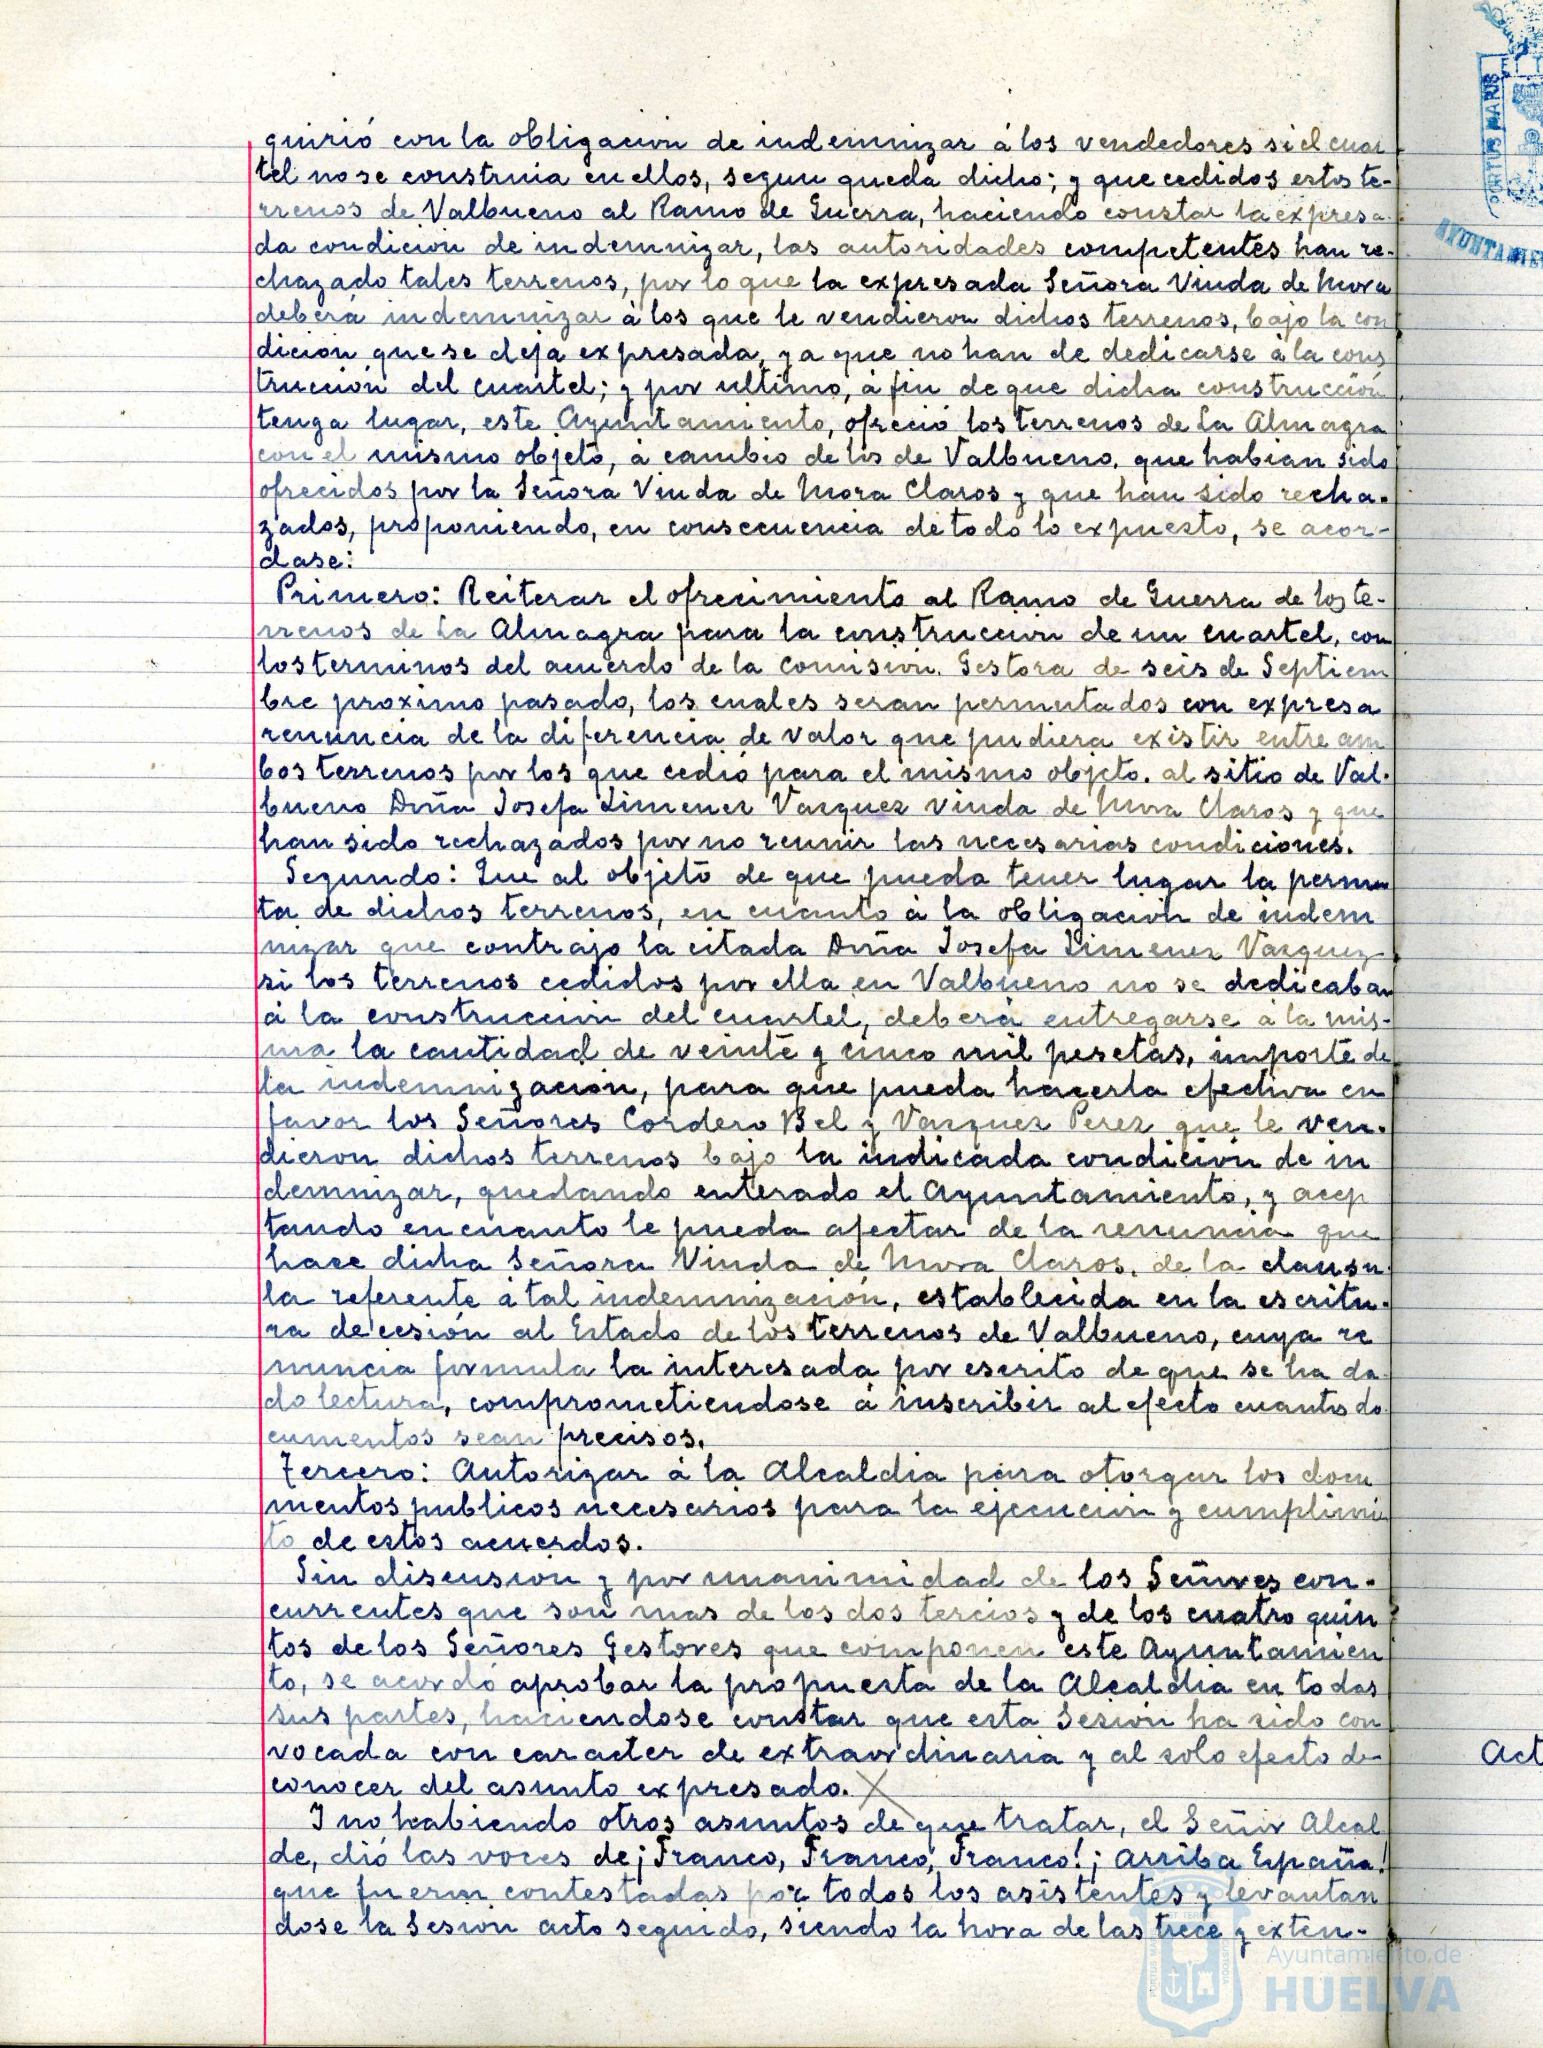 quirió con la obligacion de indemnizar á los vendedores si el cuar
tel no se construia en ellos, segun queda dicho; y que cedidos estos te-
rrenos de Valbueno al Ramo de Guerra, haciendo constar la expresa-
da condicion de indemnizar, las autoridades competentes han re-
chazado tales terrenos, por lo que la expresada Señora Viuda de Mora
deberá indemnizar á los que le vendieron dichos terrenos, bajo la con
dicion que se deja expresada, ya que no han de dedicarse á la cons
trucción del cuartel; y por ultimo, á fin de que dicha construcción
tenga lugar, este Ayuntamiento, ofreció los terrenos de La Almagra
con el mismo objeto, á cambio de los de Valbueno, que habian sido
ofrecidos por la Señora Viuda de Mora Claros y que han sido recha-
zados, proponiendo, en consecuencia de todo lo expuesto, se acor-
dase:
Primero: Reiterar el ofrecimiento al Ramo de Guerra de los te-
rrenos de La Almagra para la construccion de un cuartel, con
los terminos del acuerdo de la Comision Gestora de seis de Septiem
bre proximo pasado, los cuales seran permutados con expresa
renuncia de la diferencia de valor que pudiera existir entre am
bos terrenos por los que cedió para el mismo objeto, al sitio de Val-
bueno Doña Josefa Jimenez Vazquez viuda de Mora Claros y que
han sido rechazados por no reunir las necesarias condiciones.
Segundo: Que al objeto de que pueda tener lugar la permu
ta de dichos terrenos, en cuanto á la obligacion de indem
nizar que contrajo la citada Doña Josefa Jimenez Vazquez
si los terrenos cedidos por ella en Valbueno no se dedicaban
á la construccion del cuartel, deberá entregarse á la mis-
ma la cantidad de veinte y cinco mil pesetas, importe de
la indemnización, para que pueda hacerla efectiva en
favor los Señores Cordero Bel y Vazquez Perez que le ven-
dieron dichos terrenos bajo la indicada condición de in
demnizar, quedando enterado el Ayuntamiento, y acep
tando en cuanto le pueda afectar de la renuncia que
hace dicha Señora Viuda de Mora Claros, de la clausu-
la referente á tal indemnización, establecida en la escritu-
ra de cesión al Estado de los terrenos de Valbueno, cuya re
nuncia formula la interesada por escrito de que se ha da
do lectura, comprometiendose á inscribir al efecto cuantos do
cumentos sean precisos.
Tercero: Autorizar á la Alcaldia para otorgar los docu
mentos publicos necesarios para la ejecucion y cumplimien
to de estos acuerdos.
Sin discusion y por unanimidad de los Señores con-
currentes que son mas de los dos tercios y de los cuatro quin
tos de los Señores Gestores que componen este Ayuntamien
to, se acordó aprobar la propuesta de la Alcaldia en todas
sus partes, haciendose constar que esta Sesion ha sido con
vocada con caracter de extraordinaria y al solo efecto de
conocer del asunto expresado.
Y no habiendo otros asuntos de que tratar, el Señor Alcal
de, dió las voces de ¡Franco, Franco, Franco! ¡Arriba España!
que fueron contestadas por todos los asistentes y levantan
dose la Sesion acto seguido, siendo la hora de las trece y exten-
Act
PORTUS MARIS
AYUNTAMIE
Ayuntamiento de
HUELVA